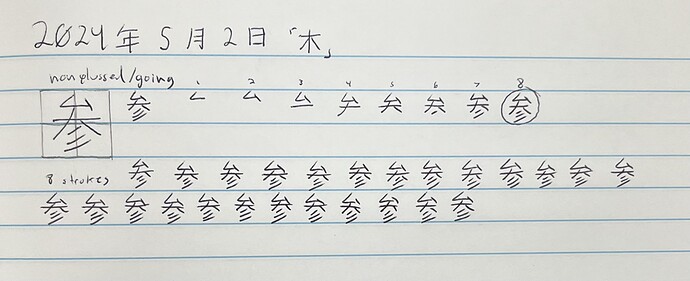 2024年5月2日「木」
nonplussed/going 1 2 3 4 5 6 7 8
参 参 参
8 strokes 参 参 参 参 参 参 参 参 参 参 参 参
参 参 参 参 参 参 参 参 参 参 参 参